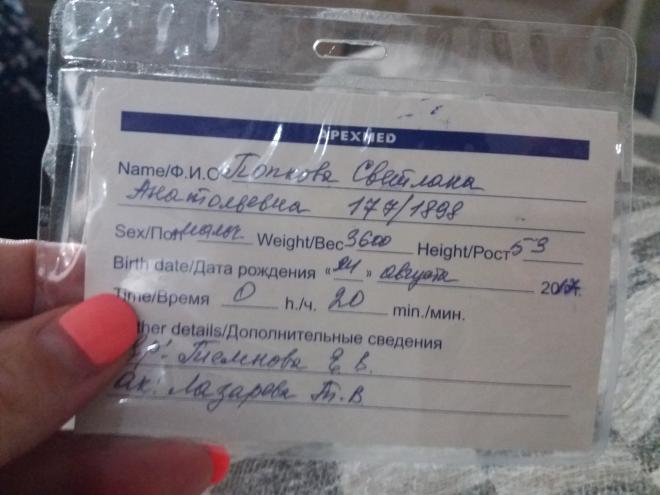 APEXMED
Name/Ф.И.О Попкова Светлана
Анатольевна 177/1898
Sex/Пол мальч Weight/Вес 3600 Height/Рост 53
Birth date/Дата рождения «21» августа 2017г.
Time/Время 0 h./ч. 20 min./мин.
Other details/Дополнительные сведения
Вр: Темнова Е. В.
Ак: Лазарева Т. В